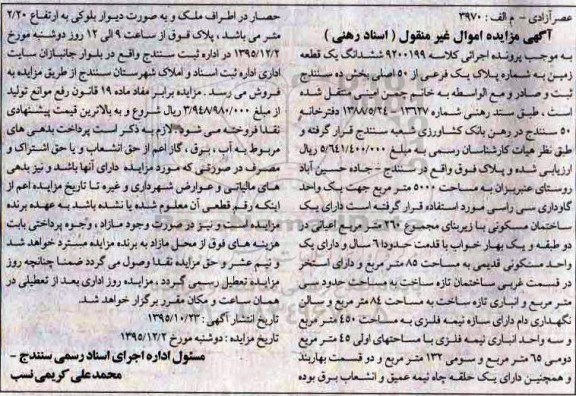 عصر آزادی - م الف : ۳۹۷۰
آگهی مزایده اموال غیر منقول ( اسناد رهنی )
به موجب پرونده اجرائی کلاسه ۹۲۰۰۱۹۹ ششدانگ یک قطعه
زمین به شماره پلاک یک فرعی از ۵۰ اصلی بخش ده سنندج
ثبت و صادر و مع الواسطه به خانم چمن امینی منتقل شده
است ، طبق سند رهنی شماره ۱۳۶۲۷ - ۱۳۸۸/۵/۲۴ دفترخانه
۵۰ سنندج در رهن بانک کشاورزی شعبه سنندج قرار گرفته و
طبق نظر هیات کارشناسان رسمی به مبلغ ۵/۶۴۱/۴۰۰/۰۰۰ ریال
ارزیابی شده و پلاک فوق واقع در سنندج - جاده حسین آباد
روستای عنبربزان به مساحت ۵۰۰۰ متر مربع جهت یک واحد
گاوداری سی راسی مورد استفاده قرار گرفته است دارای یک
ساختمان مسکونی با زیربنای مجموع ۲۶۰ متر مربع اعیانی در
دو طبقه و یک بهار خواب با قدمت حدودا ٦ سال و دارای یک
واحد مسکونی قدیمی به مساحت ۸۵ متر مربع و دارای استخر
در قسمت غربی ساختمان تازه ساخت به مساحت حدود سی
متر مربع و انباری تازه ساخت به مساحت ۸۴ متر مربع و سالن
نگهداری دام دارای سازه نیمه فلزی به مساحت ۴۵۰ متر مربع
و سه واحد انباری نیمه فلزی با مساحتهای اولی ۴۵ متر مربع
دومی ٦۵ متر مربع و سومی ۱۳۲ متر مربع و دو قسمت بهاربند
و همچنین دارای یک حلقه چاه نیمه عمیق و انشعاب برق بوده
حصار در اطراف ملک و به صورت دیوار بلوکی به ارتفاع ۲/۲۰
متر می باشد ، پلاک فوق از ساعت ۹ الی ۱۲ روز دوشنبه مورخ
۱۳۹۵/۱۲/۲ در اداره ثبت سنندج واقع در بلوار جانبازان سایت
اداری اداره ثبت اسناد و املاک شهرستان سنندج از طریق مزایده به
فروش می رسد . مزایده برابر مفاد ماده ۱۹ قانون رفع موانع تولید
از مبلغ ۳/۹۴۸/۹۸۰/۰۰۰ ریال شروع و به بالاترین قیمت پیشنهادی
نقدا فروخته می شود . لازم به ذکر است پرداخت بدهی های
مربوط به آب ، برق ، گاز اعم از حق انشعاب و یا حق اشتراک و
مصرف در صورتی که مورد مزایده دارای آنها باشد و نیز بدهی
های مالیاتی و عوارض شهرداری و غیره تا تاریخ مزایده اعم از
اینکه رقم قطعی آن معلوم شده یا نشده باشد به عهده برنده
مزایده است و نیز در صورت وجود مازاد ، وجوه پرداختی بابت
هزینه های فوق از محل مازاد به برنده مزایده مسترد خواهد شد
و نیم عشر و حق مزایده نقدا وصول می گردد ضمنا چنانچه روز
مزایده تعطیل رسمی گردد ، مزایده روز اداری بعد از تعطیلی در
همان ساعت و مکان مقرر برگزار خواهد شد.
تاریخ انتشار آگهی : ۱۳۹۵/۱۰/۲۳
تاریخ مزایده : دوشنبه مورخ ۱۳۹۵/۱۲/۲
مسئول اداره اجرای اسناد رسمی سنندج -
محمد علی کریمی نسب